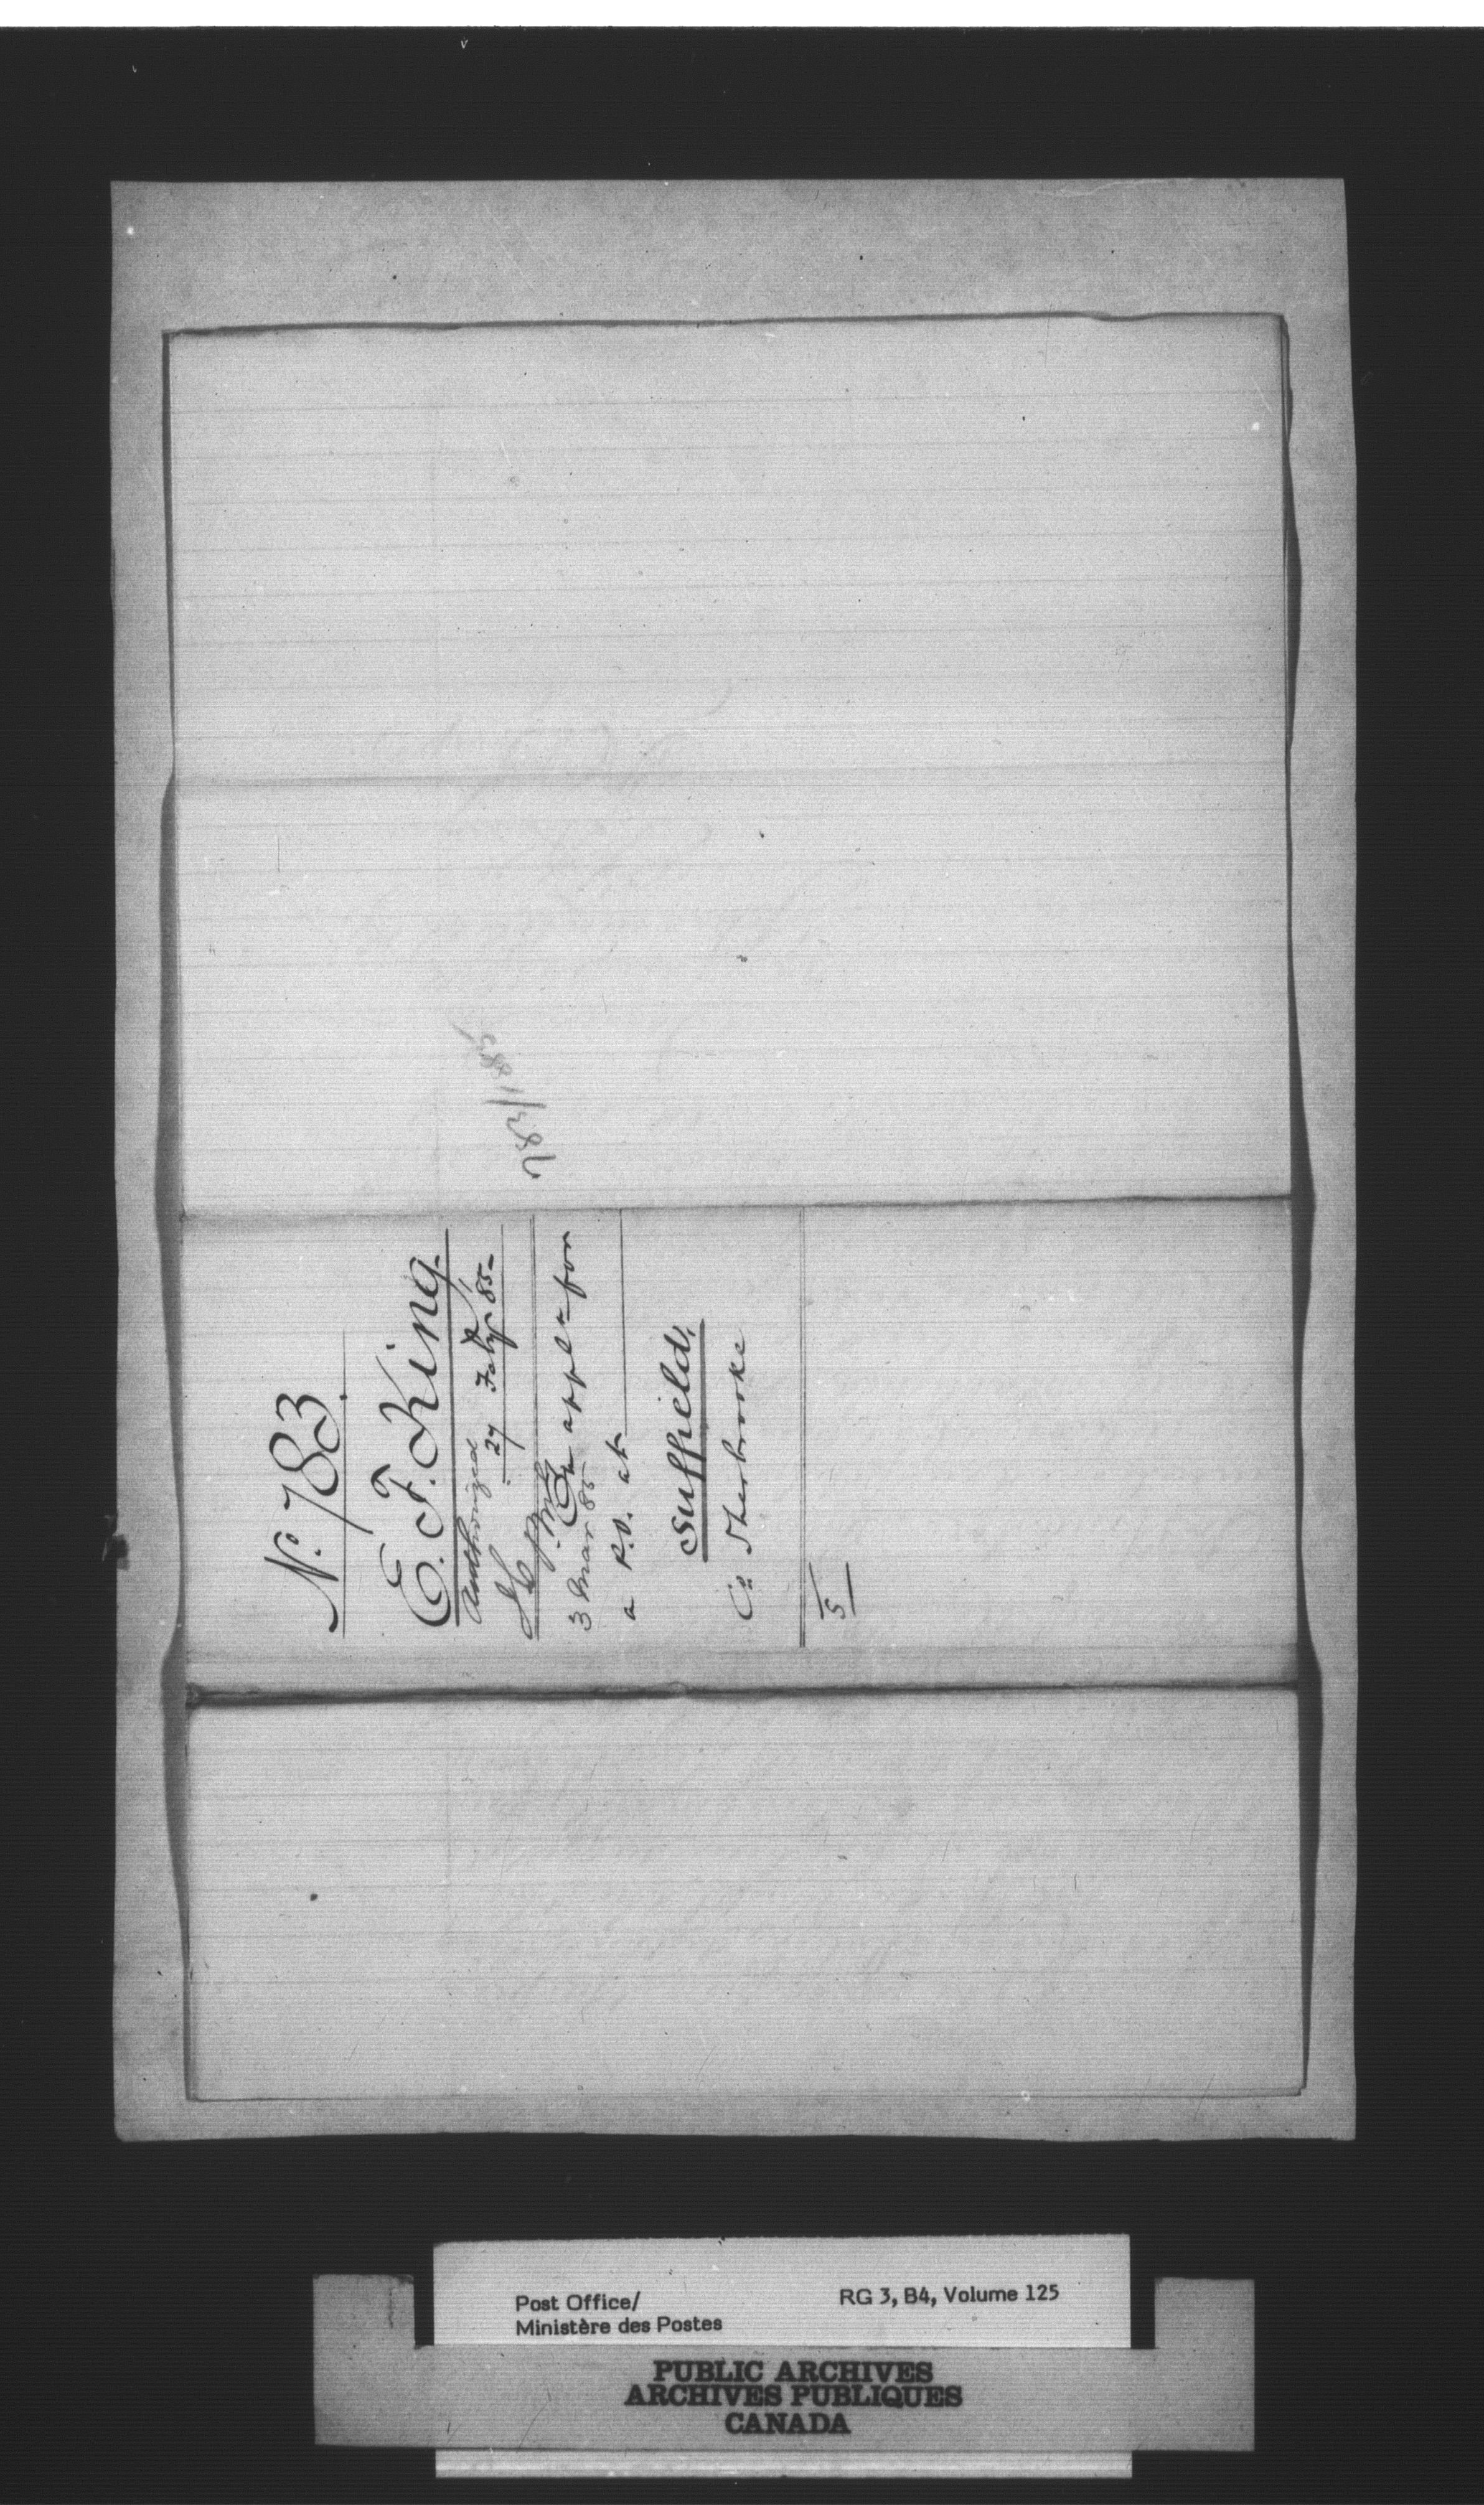 No. 783.
E. F. King
Authorized
27 July 85
3 Mar 85
On appln for
a P.O. at
Suffield,
Co Sherbrooke
5
783/1885
Post Office/
Ministère des Postes
RG 3, B4, Volume 125
PUBLIC ARCHIVES
ARCHIVES PUBLIQUES
CANADA